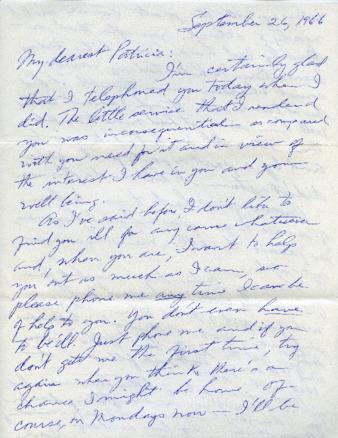 September 26, 1966
My dearest Patricia:
I'm certainly glad
that I telephoned you today when I
did. The little service that I rendered
you was inconsequential as compared
with your need for it and in view of
the interest I have in you and your
well being.
As I've said before, I don't like to
find you ill for any cause whatsoever
and, when you are, I want to help
you out as much as I can, so
please phone me any time I can be
of help to you. You don't even have
to be ill. Just phone me and if you
don't get me the first time, try
again when you think there's a
chance I might be home. Of
course, on Mondays now — I'll be